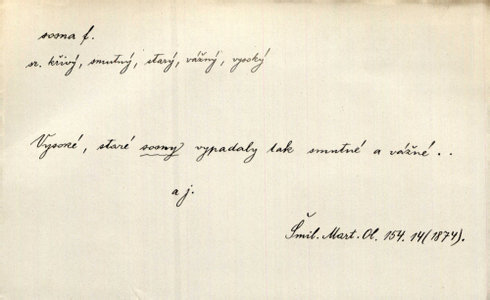 sosna f.
sr. křivý, smutný, starý, vážný, vysoký
Vysoké, staré sosny vypadaly tak smutné a vážné..
a j.
Šmil. Mart. Ol. 154. 14 (1874).